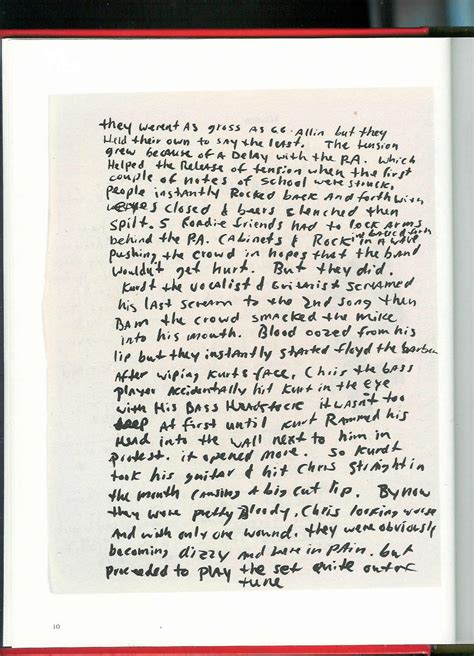 they werent As gross as G.G. Allin but they
Held their own to say the least. The tension
grew because of A Delay with the P.A. which
Helped the Release of tension when the first
couple of notes of School were struck,
people instantly Rocked back And forth with
eyes closed & beers clenched then
spilt. 5 Roadie friends had to lock arms
behind the P.A. cabinets & Rock back & forth in A wave
pushing the crowd in hopes that the band
wouldn't get hurt. But they did.
Kurdt the vocalist & Guitarist screamed
his last scream to the 2nd song then
BAM the crowd smacked the mike
into his mouth. Blood oozed from his
lip but they instantly started floyd the barber
After wiping kurts face, Chris the bass
player Accidentally hit Kurt in the eye
with His BASS HeadStock it wasnt too
deep At first until Kurt Rammed his
Head into the wall next to him in
protest. it opened more. So Kurdt
took his guitar & hit Chris straight in
the mouth causing A big cut lip. By now
they were pretty Bloody, Chris looking worse
And with only one wound. they were obviously
becoming dizzy and were in pAin. but
proceeded to plAy the set quite out of
tune
10